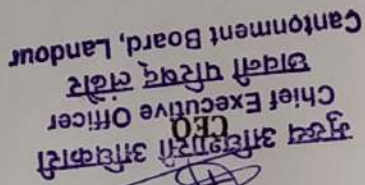 CEO
मुख्य अधिशासी अधिकारी
Chief Executive Officer
छावनी परिषद् लंढौर
Cantonment Board, Landour